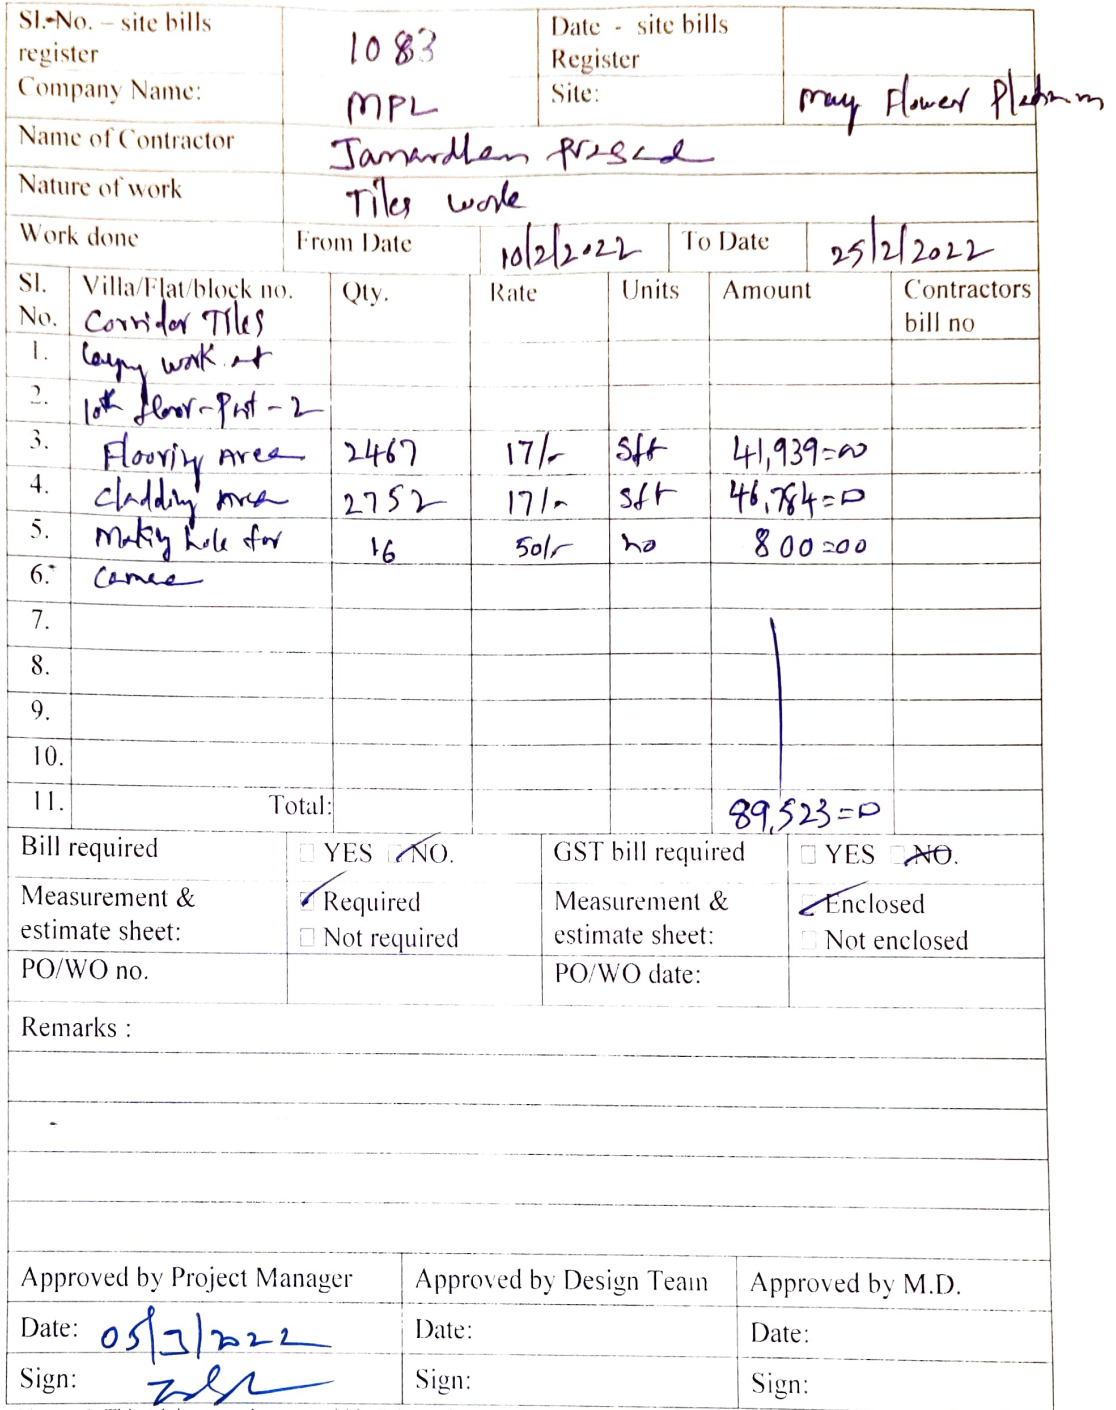 Sl.-No. – site bills register 1083 Date - site bills Register
Company Name: MPL Site: may Flower Platinum
Name of Contractor Janardhan prasad
Nature of work Tiles work
Work done From Date 10/2/2022 To Date 25/2/2022
Sl. No. Villa/Flat/block no. Qty. Rate Units Amount Contractors bill no
Corridor Tiles
1. work at
2. 10th floor - Part - 2
3. Flooring Area 2467 17/- Sft 41,939=00
4. Cladding Area 2752 17/- Sft 46,784=0
5. Making hole for 16 50/- no 800=00
6.
7.
8.
9.
10.
11. Total: 89,523=0
Bill required YES NO. GST bill required YES NO.
Measurement & estimate sheet: Required Measurement & estimate sheet: Enclosed
Not required Not enclosed
PO/WO no. PO/WO date:
Remarks :
Approved by Project Manager Approved by Design Team Approved by M.D.
Date: 05/3/2022 Date: Date:
Sign: Sign: Sign: